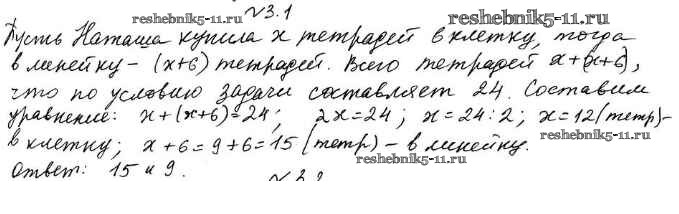 №3.1
reshebnik5-11.ru
Пусть Наташа купила x тетрадей в клетку, тогда
в линейку - (x+6) тетрадей. Всего тетрадей x+(x+6),
что по условию задачи составляет 24. Составим
уравнение: x+(x+6)=24; 2x=24; x=24:2; x=12(тетр)-
reshebnik5-11.ru
в клетку; x+6=9+6=15 (тетр) - в линейку.
reshebnik5-11.ru
ответ: 15 и 9.